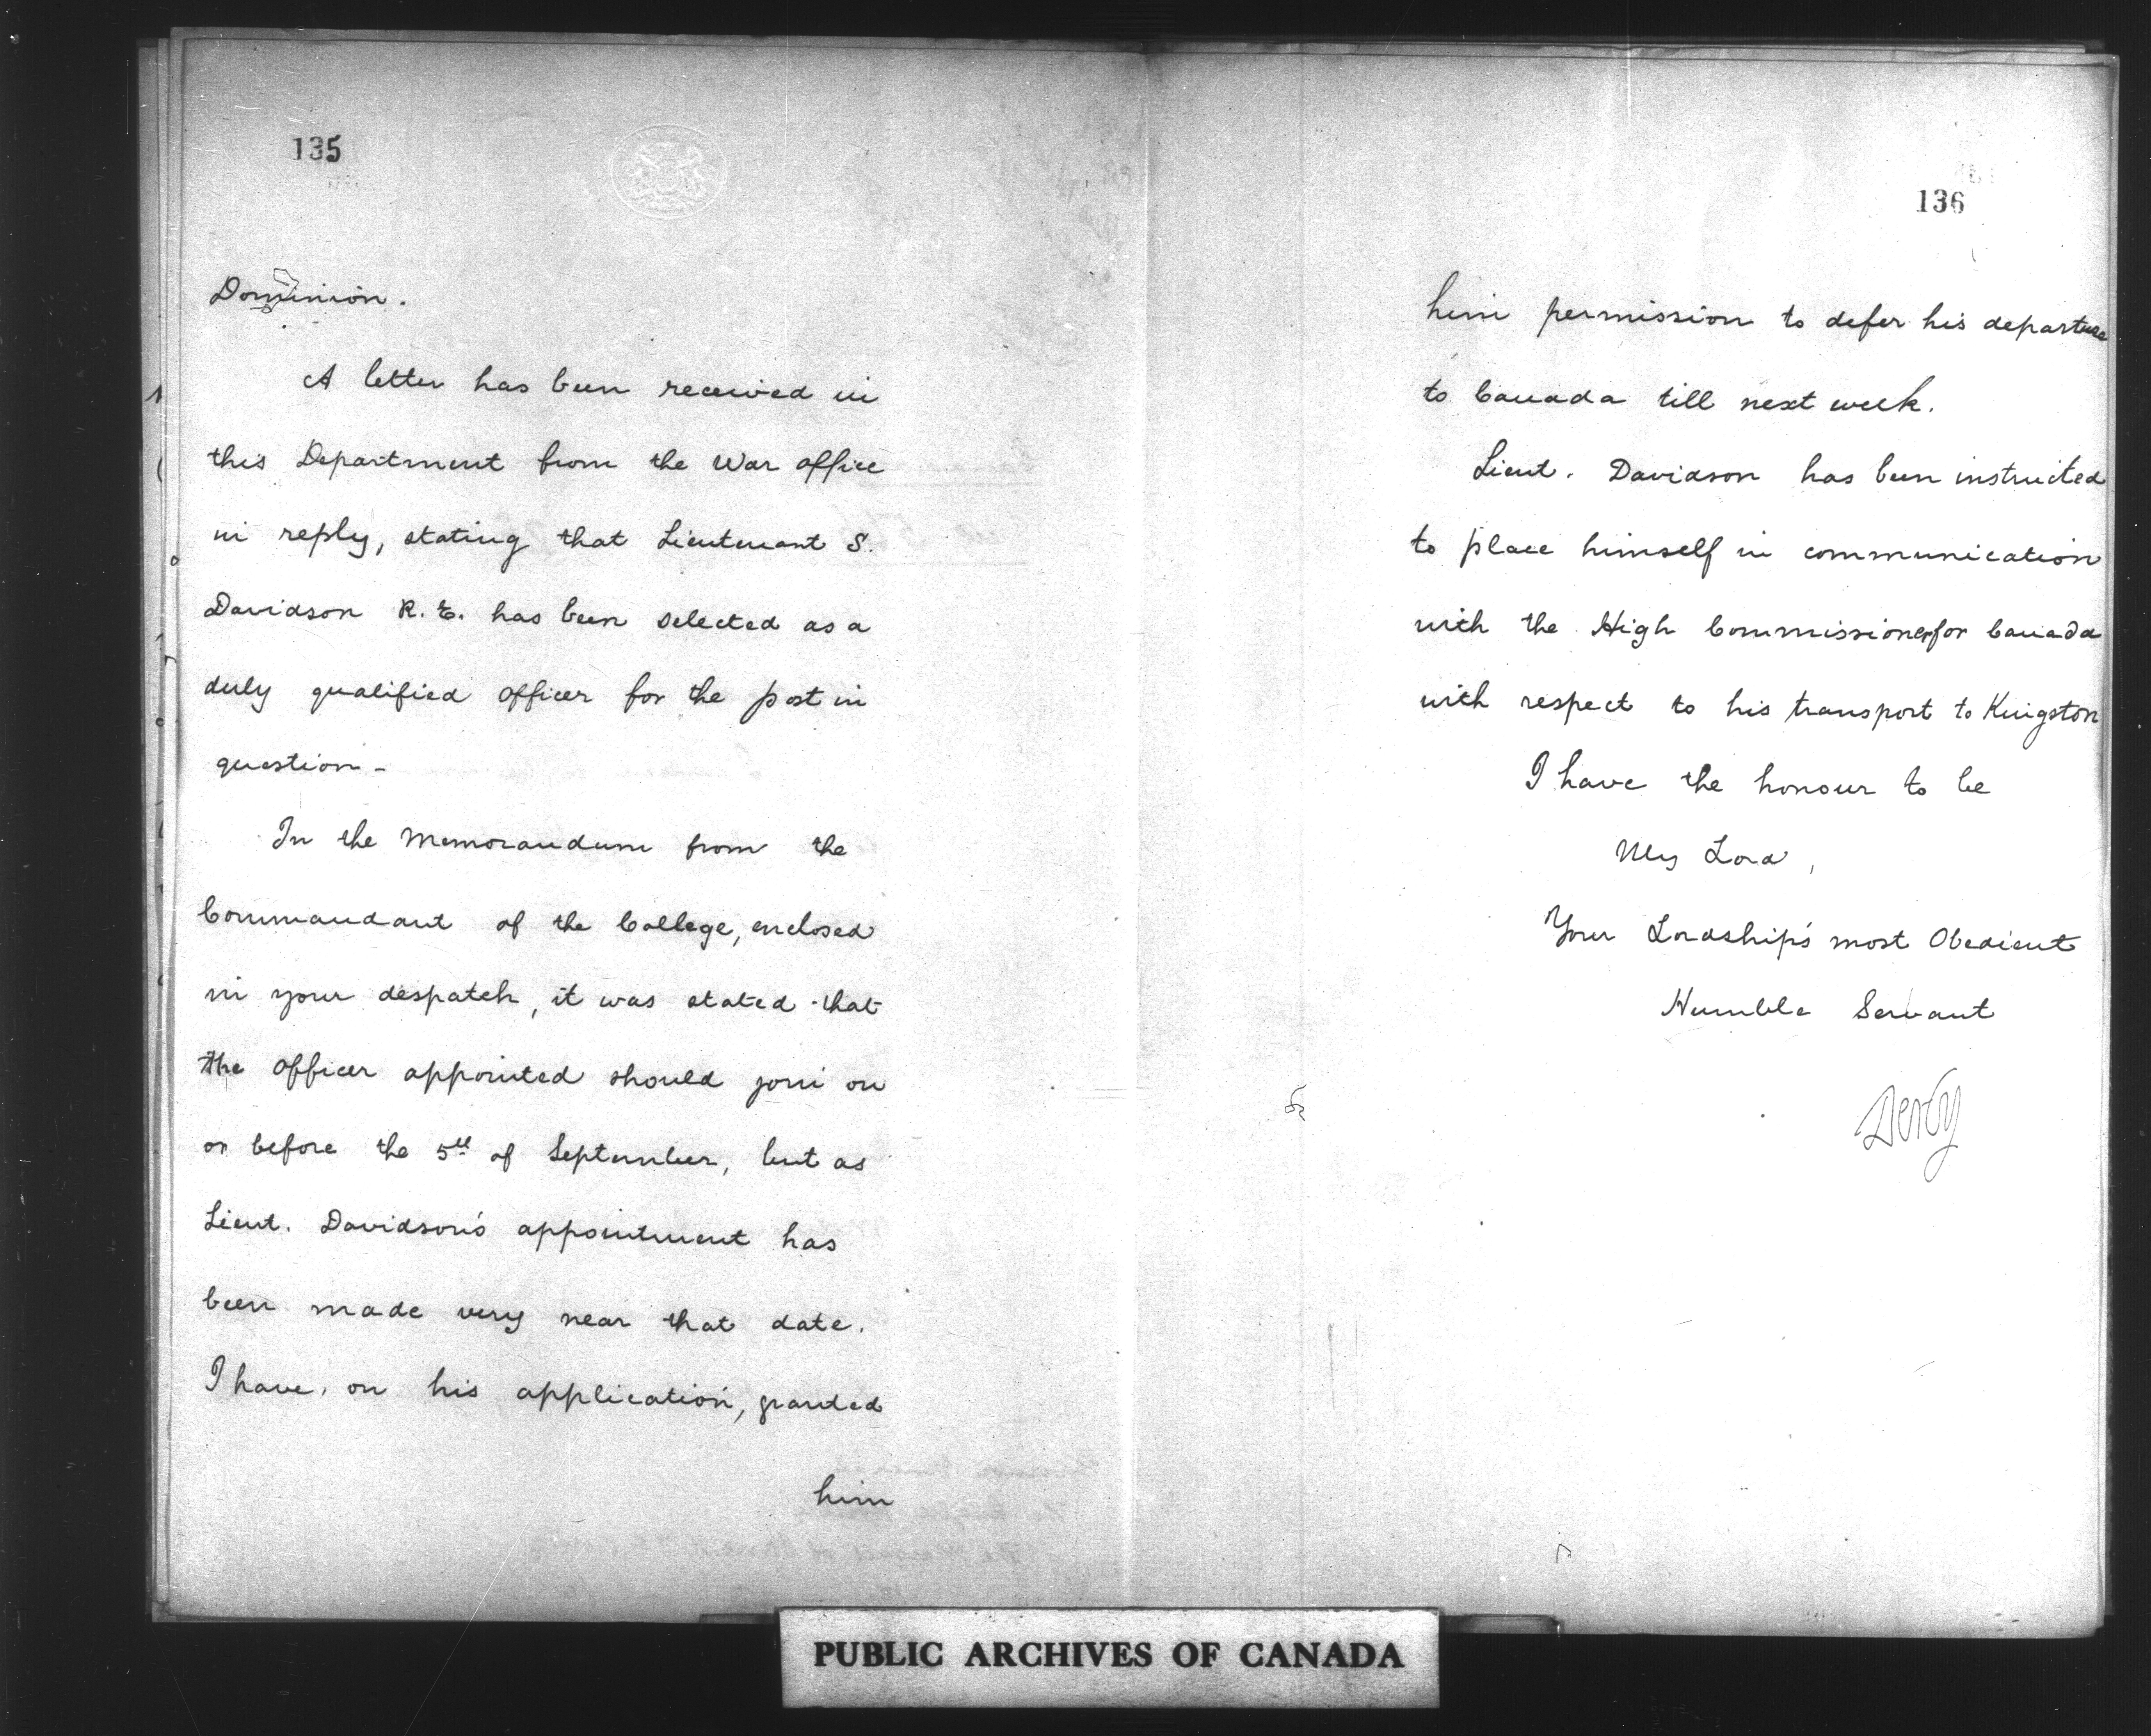 135
Dominion.
A letter has been received in
this Department from the War office
in reply, stating that Lieutenant S.
Davidson R.E. has been selected as a
duly qualified officer for the post in
question -
In the Memorandum from the
Commandant of the College, enclosed
in your despatch, it was stated that
the officer appointed should join on
or before the 5th of September, but as
Lieut. Davidson's appointment has
been made very near that date.
I have, on his application, granted
him
136
him permission to defer his departure
to Canada till next week.
Lieut. Davidson has been instructed
to place himself in communication
with the High Commissioner for Canada
with respect to his transport to Kingston
I have the honour to be
My Lord,
Your Lordship's most Obedient
Humble Servant
Derby
PUBLIC ARCHIVES OF CANADA